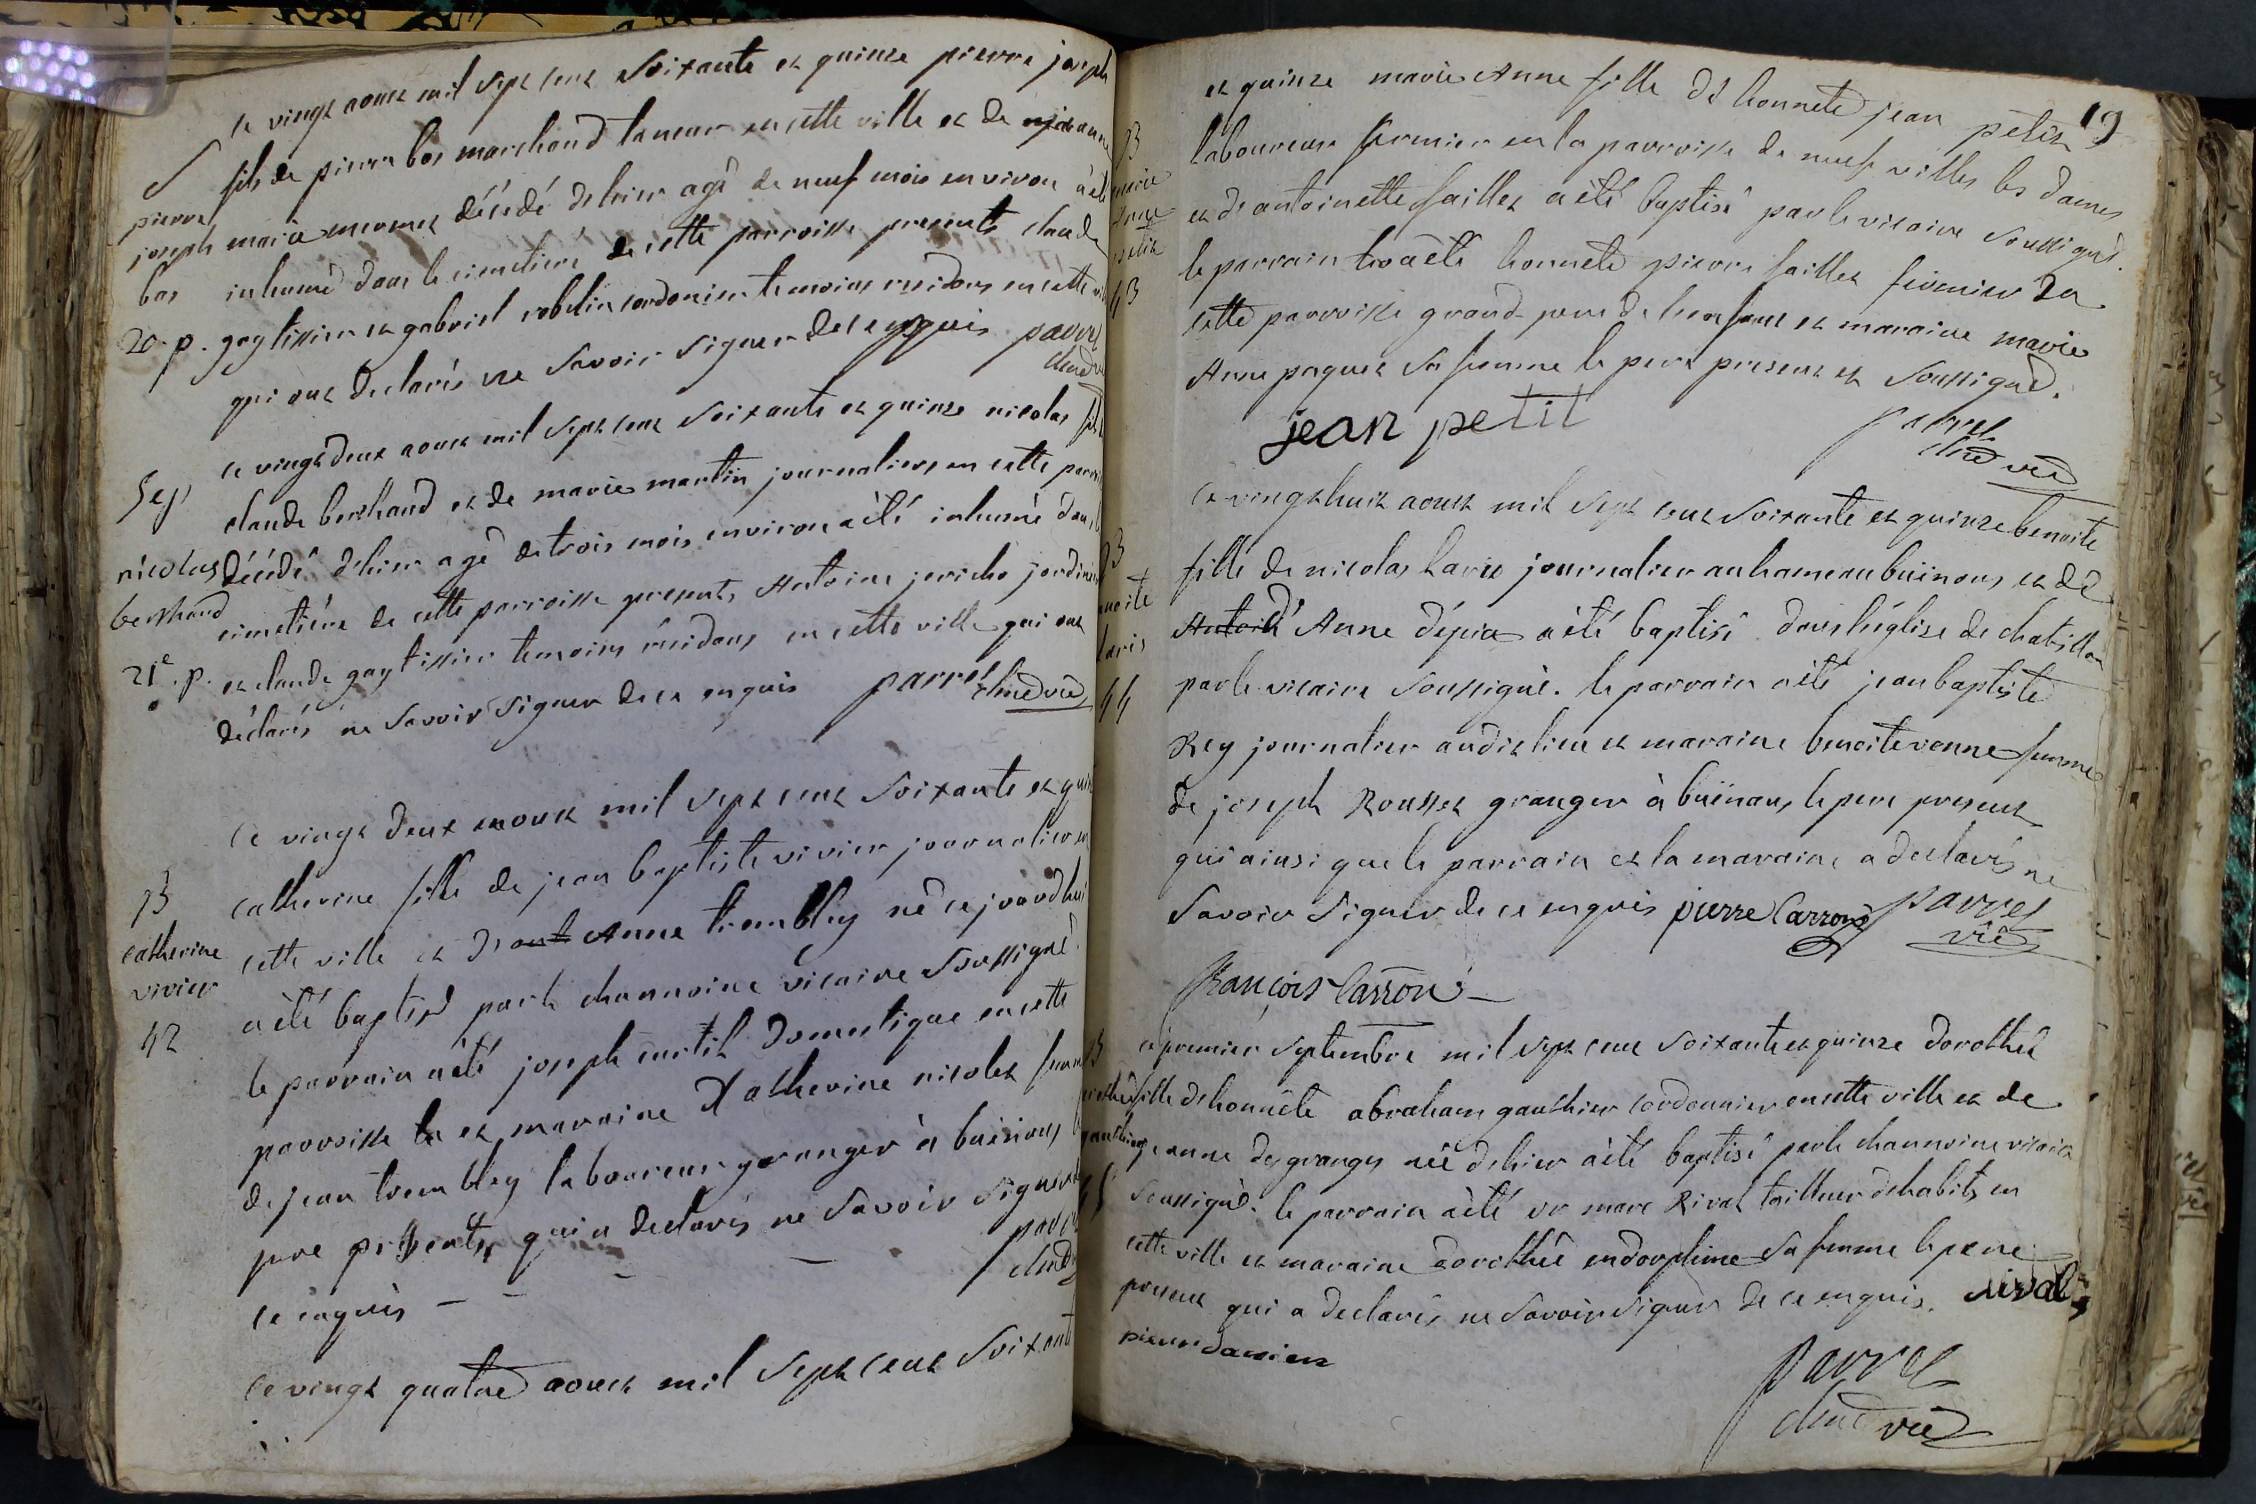 le vingt aoust mil sept cent soixante et quinze pierre joseph
S fils de pierre bos marchand taneur en cette ville et de
pierre joseph bos
marie décédé d'hier agé de neuf mois environ a été
inhumé dans le cimetiére de cette parroisse presents claude
20. p. gaytissier et gabriel robelin cordonier temoins residans en cette
qui ont declarés ne savoir signer de ce enquis parret
ce vingt deux aoust mil sept cent soixante et quinze nicolas fils
Sep
claude berthaud et de marie martin journaliers en cette
nicolas berthaud
décédé d'hier agé de trois mois environ a été inhumé dans
cimetiére de cette parroisse presents Antoine jericho jardinier
21e. p. et claude gaytissier temoins résidans en cette ville qui ont
déclarés ne savoir signer de ce enquis parret
ce vingt deux aoust mil sept cent soixante et
catherine fille de jean baptiste vivier journalier en
catherine
vivier
42
cette ville et d'ant Anne trembley né ce jourd'hui
a été baptisé par le channoine vicaire soussigné.
le parrain a été joseph domestique en cette
parroisse la et maraine Catherine nicolet femme
de jean trembley laboureur granger à buinans
pere présents, qui a declarés ne savoir signer
ce enquis - -
parret
ce vingt quatre aoust mil sept cent soixante
19
et quinze marie Anne fille de honnete jean petit
laboureur fermier en la parroisse de neuf villes les dames
et de antoinette faillet a été baptisé par le vicaire soussigné.
le parrain a été honnete pierre faillet fermier en
cette parroisse grand-pere de l'enfant et maraine marie
Anne paquet sa femme le pere present et soussigné.
marie
Anne
petit
43
jean petit
parret
ce vingt huit aoust mil sept cent soixante et quinze benoite
fille de nicolas laris journalier au hameau buinans, et de
Antoid' Anne dépia a été baptisé dans l'église de chatillon
par le vicaire soussigné. le parrain a été jean baptiste
Rey journalier audit lieu et maraine benoite vonne femme
de joseph Rousset granger à buinans, le pere present
qui ainsi que le parrain et la maraine a declarés ne
savoir signer de ce enquis pierre Carron parret
laris
44
vic
françois Carron
ce premier septembre mil sept cent soixante et quinze dorothée
fille d'honnête abraham gauthier cordonnier en cette ville et de
jeanne desgranges née d'hier a été baptisé par le channoine vicaire
soussigné. le parrain a été sr marc Rival tailleur d'habits en
cette ville et maraine dorothée sa femme le pere
present qui a declarés ne savoir signer de ce enquis. rival
parret
vic